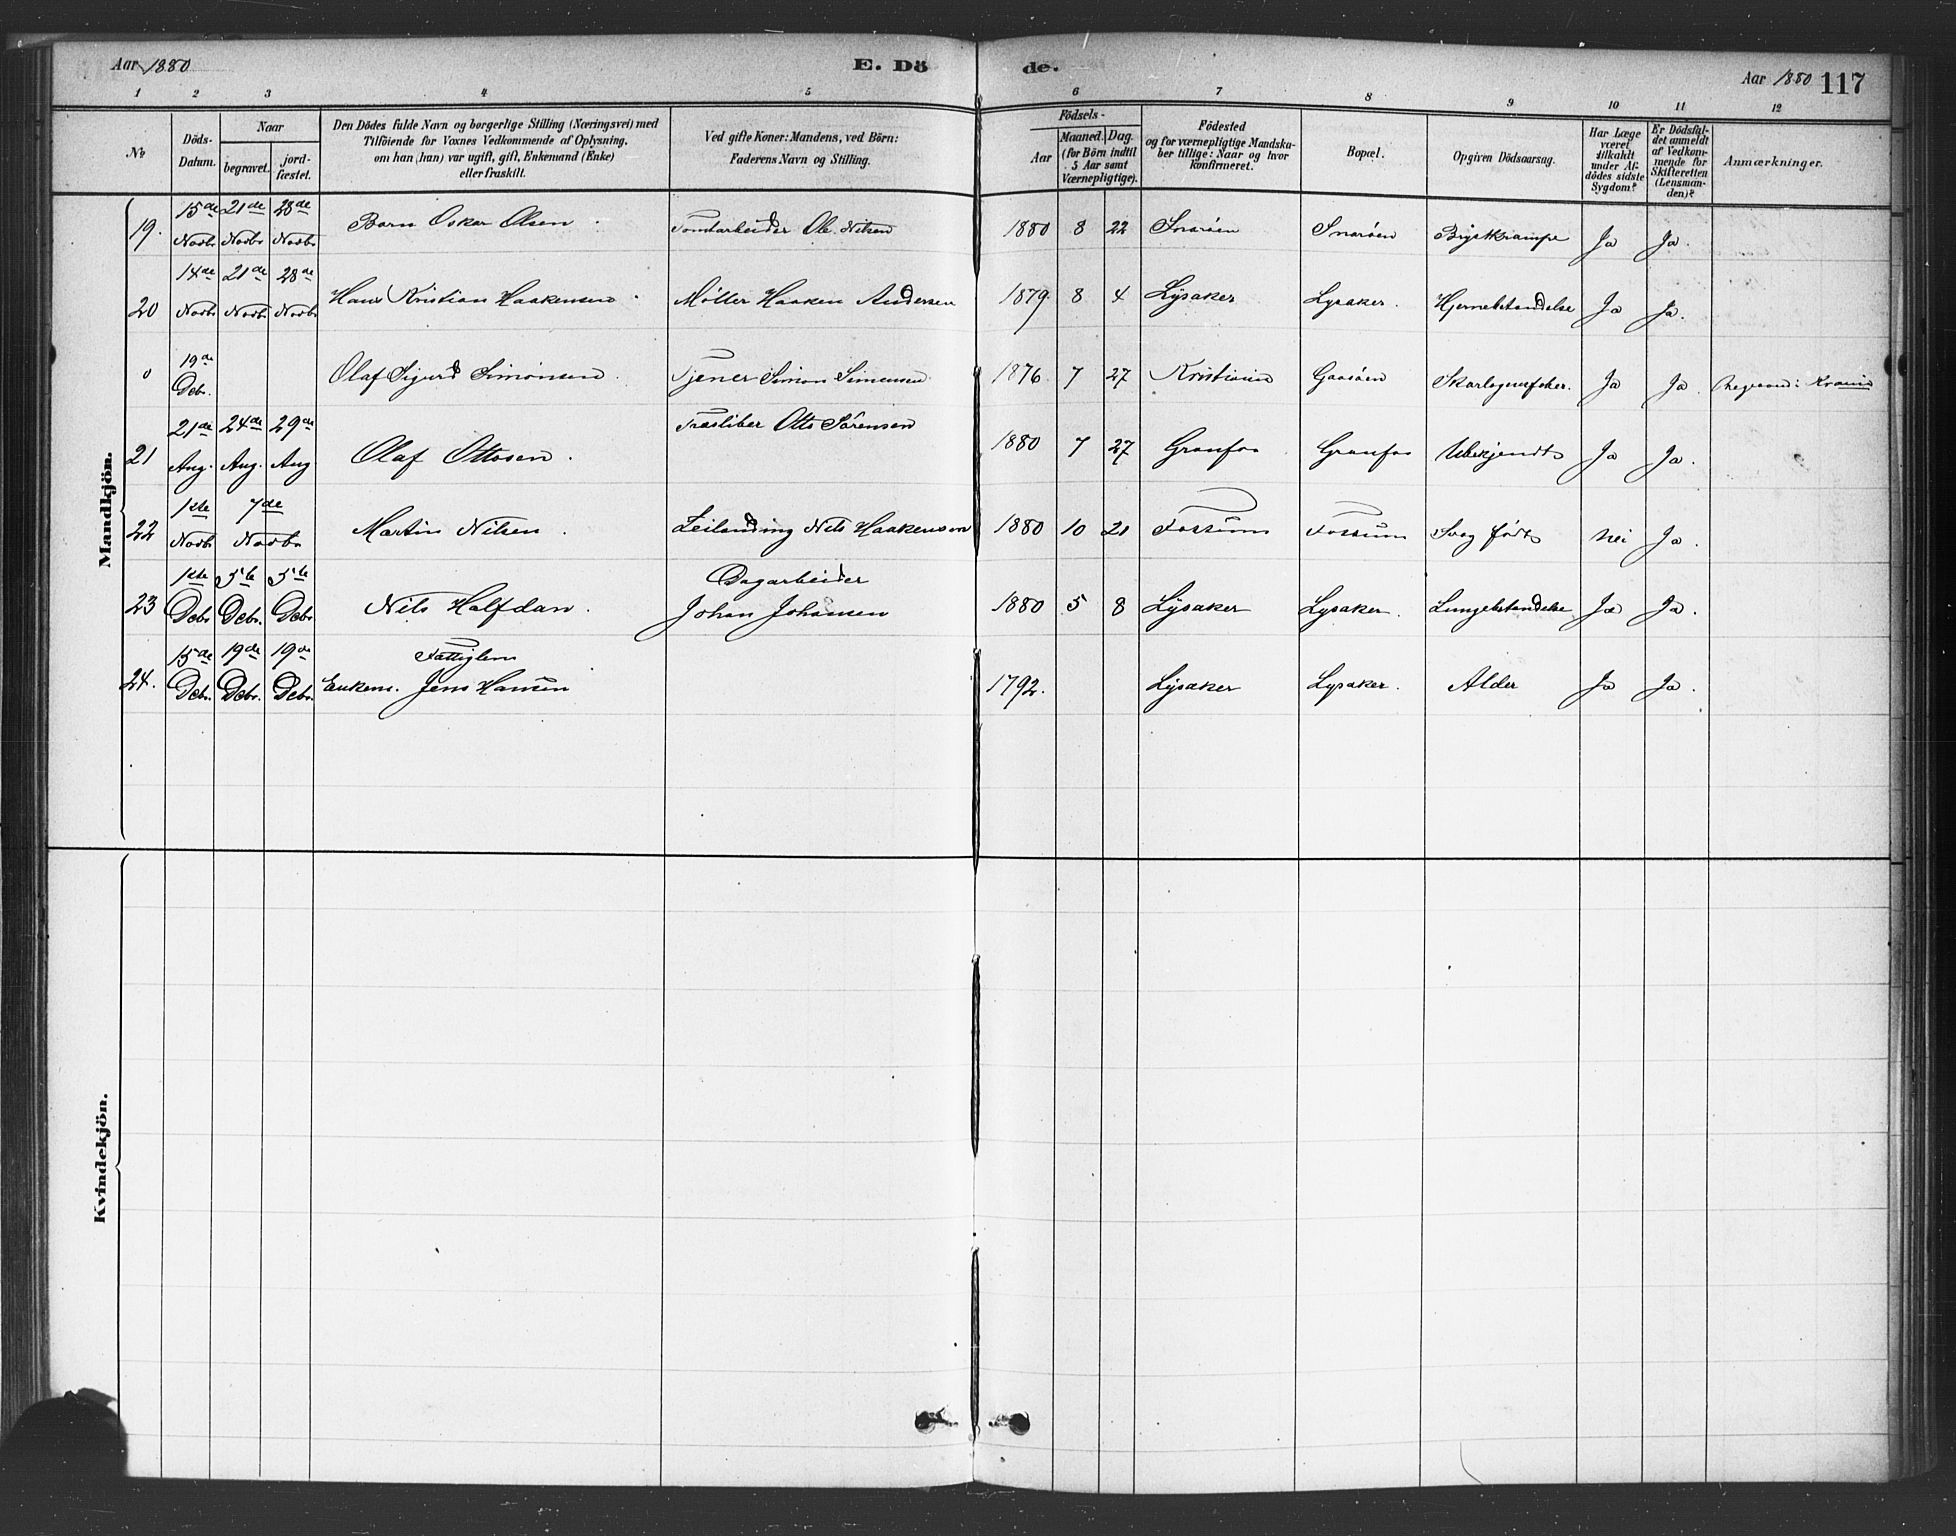 Aar 1880
E. Dö de.
Aar 1880 117
1 2 3 4 5 6 7 8 9 10 11 12
No
Döds-Datum.
Naar
begravet.
jord-fæstet.
Den Dödes fulde Navn og borgerlige Stilling (Næringsvei) med
Tilföiende for Voxnes Vedkommende af Oplysning,
om han (hun) var ugift, gift, Enkemand (Enke)
eller fraskilt.
Ved gifte Koner: Mandens, ved Börn:
Faderens Navn og Stilling.
Födsels-
Aar
Maaned. Dag.
(for Börn indtil
5 Aar samt
Værnepligtige).
Födested
og for værnepligtige Mandska-
ber tillige: Naar og hvor
konfirmeret.
Bopæl.
Opgiven Dödsaarsag.
Har Læge
været
tilkaldt
under Af-
dödes sidste
Sygdom?
Er Dödsfal-
det anmeldt
af Vedkom-
mende for
Skifteretten
(Lensman-
den)?
Anmærkninger.
Mandkjön.
19. 15de Novbr 21de Novbr 28de Novbr Barn Oskar Olsen Tomtarbeider Ole Nilsen 1880 8 22 Snaröen Snaröen Brystkrampe Ja Ja.
20 14de Novbr 21de Novbr 28de Novbr Hans Kristian Haakensen Möller Haaken Andersen 1879. 8 4 Lysaker Lysaker. Hjernebetændelse Ja Ja.
0 19de Debr. Olaf Sigurd Simonsen Tjener Simon Simensen 1876. 7 27 Kristiania Gaasöen Skarlagensfeber. Ja Ja. Begravet i Krania
21 21de Aug. 24de Aug. 29de Aug Olaf Ottosen. Træsliber Otto Sörensen 1880 7 27 Granfos Granfos Ubekjendt Ja Ja.
22 1ste Novbr 7de Novbr Martin Nilsen. Leilænding Nils Haakensen 1880 10 21 Fossum Fossum Svag födt nei Ja.
23 1ste Debr 5te Debr. 5te Debr Nils Halfdan. Dagarbeider Johan Johansen 1880 5 8 Lysaker Lysaker. Lungebetændelse Ja Ja.
24. 15de Debr. 19de Debr. 19de Debr. Fattiglem Enkem. Jens Hansen 1792. Lysaker Lysaker. Alder Ja Ja.
Kvindekjön.